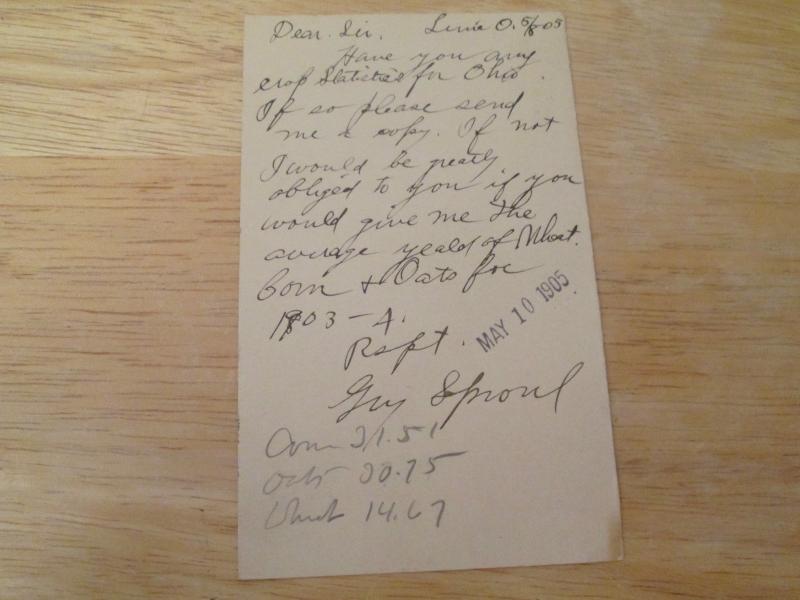 Dear Sir. Lima O. 5/8 05
Have you any
crop Statistics for Ohio.
If so please send
me a copy. If not
I would be greatly
obliged to you if you
would give me the
average yeald of Wheat.
Corn & Oats for
1903-4.
Respt.
MAY 10 1905
Guy Sproul
Corn 31.51
Oats 30.75
Wheat 14.67